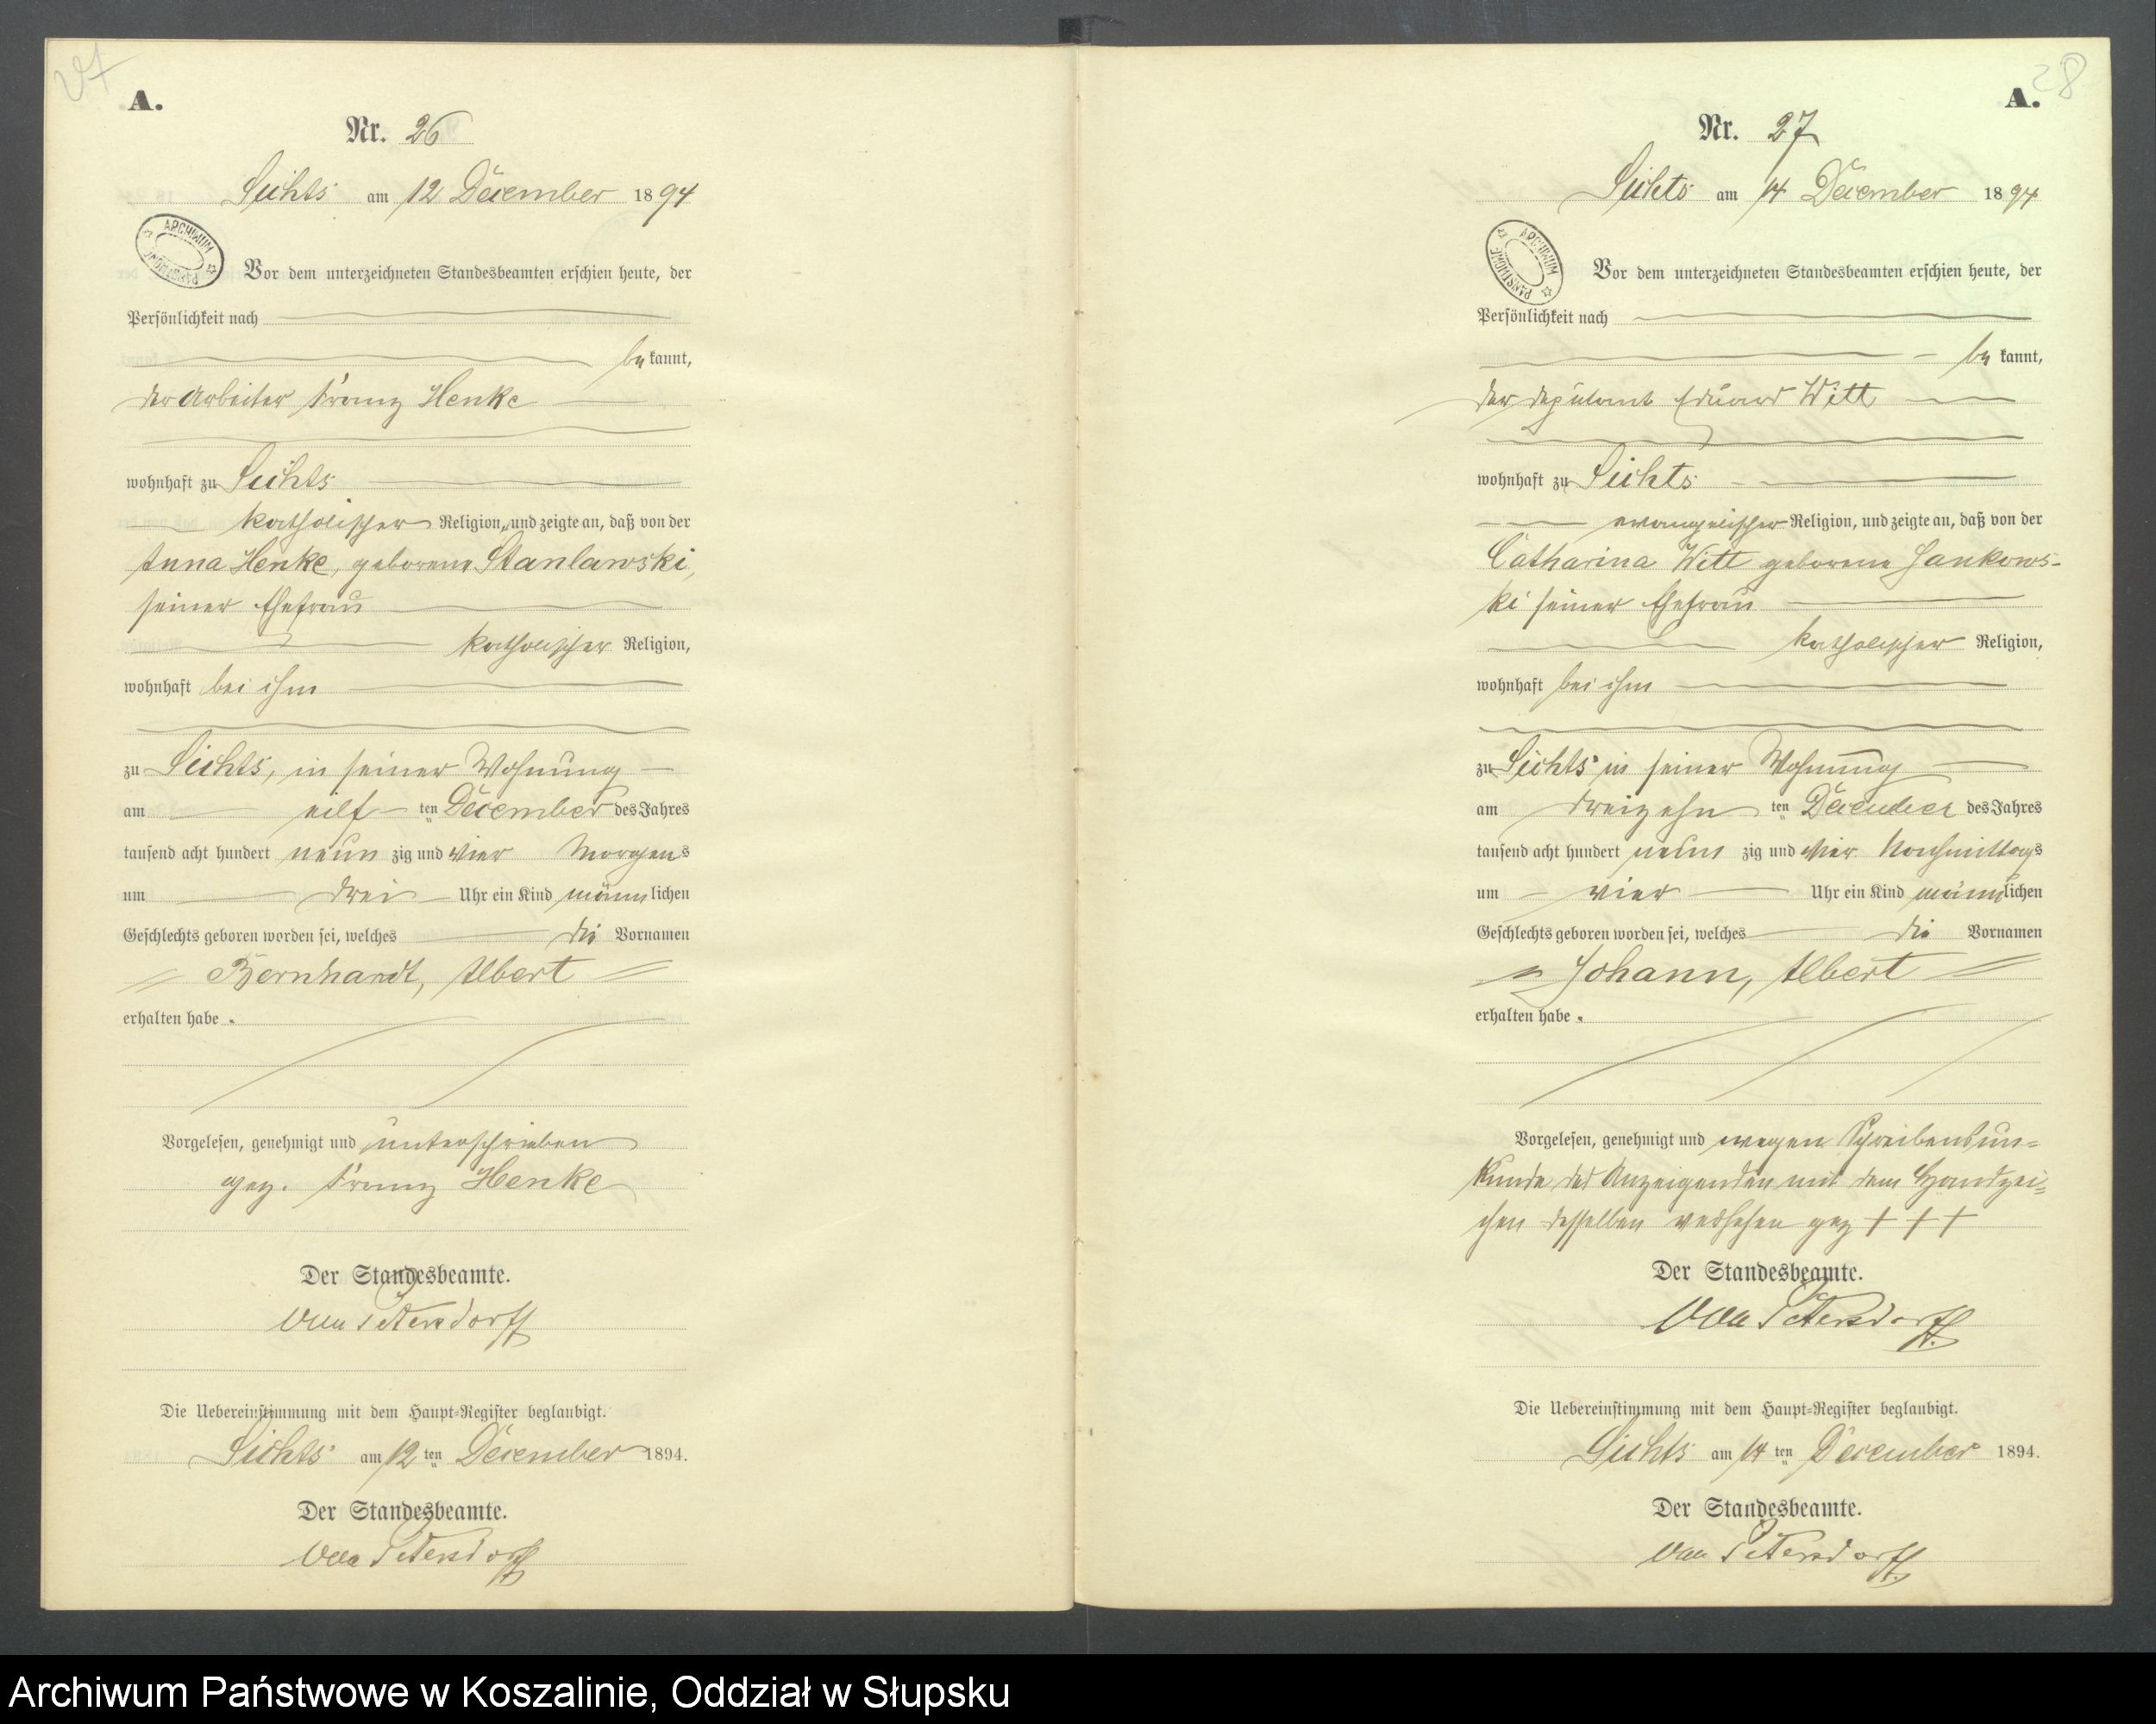 27
A.
Nr. 26
Sichts am 12 December 1894
ARCHIWUM PAŃSTWOWE
Vor dem unterzeichneten Standesbeamten erschien heute, der
Persönlichkeit nach
be kannt,
der Arbeiter Franz Henke
wohnhaft zu Sichts
katholischer Religion, und zeigte an, daß von der
Anna Henke, geborene Stanlawski,
seiner Ehefrau
katholischer Religion,
wohnhaft bei ihm
zu Sichts, in seiner Wohnung
am eilf ten December des Jahres
tausend acht hundert neun zig und vier Morgens
um drei Uhr ein Kind männ lichen
Geschlechts geboren worden sei, welches die Vornamen
Bernhardt, Albert
erhalten habe.
Vorgelesen, genehmigt und unterschrieben
gez. Franz Henke
Der Standesbeamte.
von Petersdorff
Die Uebereinstimmung mit dem Haupt-Register beglaubigt.
Sichts am 12 ten December 1894.
Der Standesbeamte.
von Petersdorff
28
A.
Nr. 27
Sichts am 14 December 1894
ARCHIWUM PAŃSTWOWE
Vor dem unterzeichneten Standesbeamten erschien heute, der
Persönlichkeit nach
be kannt,
der Deputant Eduard Witt
wohnhaft zu Sichts
evangelischer Religion, und zeigte an, daß von der
Catharina Witt geborene Jankows-
ki seiner Ehefrau
katholischer Religion,
wohnhaft bei ihm
zu Sichts in seiner Wohnung
am dreizehn ten December des Jahres
tausend acht hundert neun zig und vier Nachmittags
um vier Uhr ein Kind männlichen
Geschlechts geboren worden sei, welches die Vornamen
Johann, Albert
erhalten habe.
Vorgelesen, genehmigt und wegen Schreibensun=
kunde des Anzeigenden mit dem Handzei=
chen desselben versehen gez + + +
Der Standesbeamte.
von Petersdorff
Die Uebereinstimmung mit dem Haupt-Register beglaubigt.
Sichts am 14 ten December 1894.
Der Standesbeamte.
von Petersdorff
Archiwum Państwowe w Koszalinie, Oddział w Słupsku